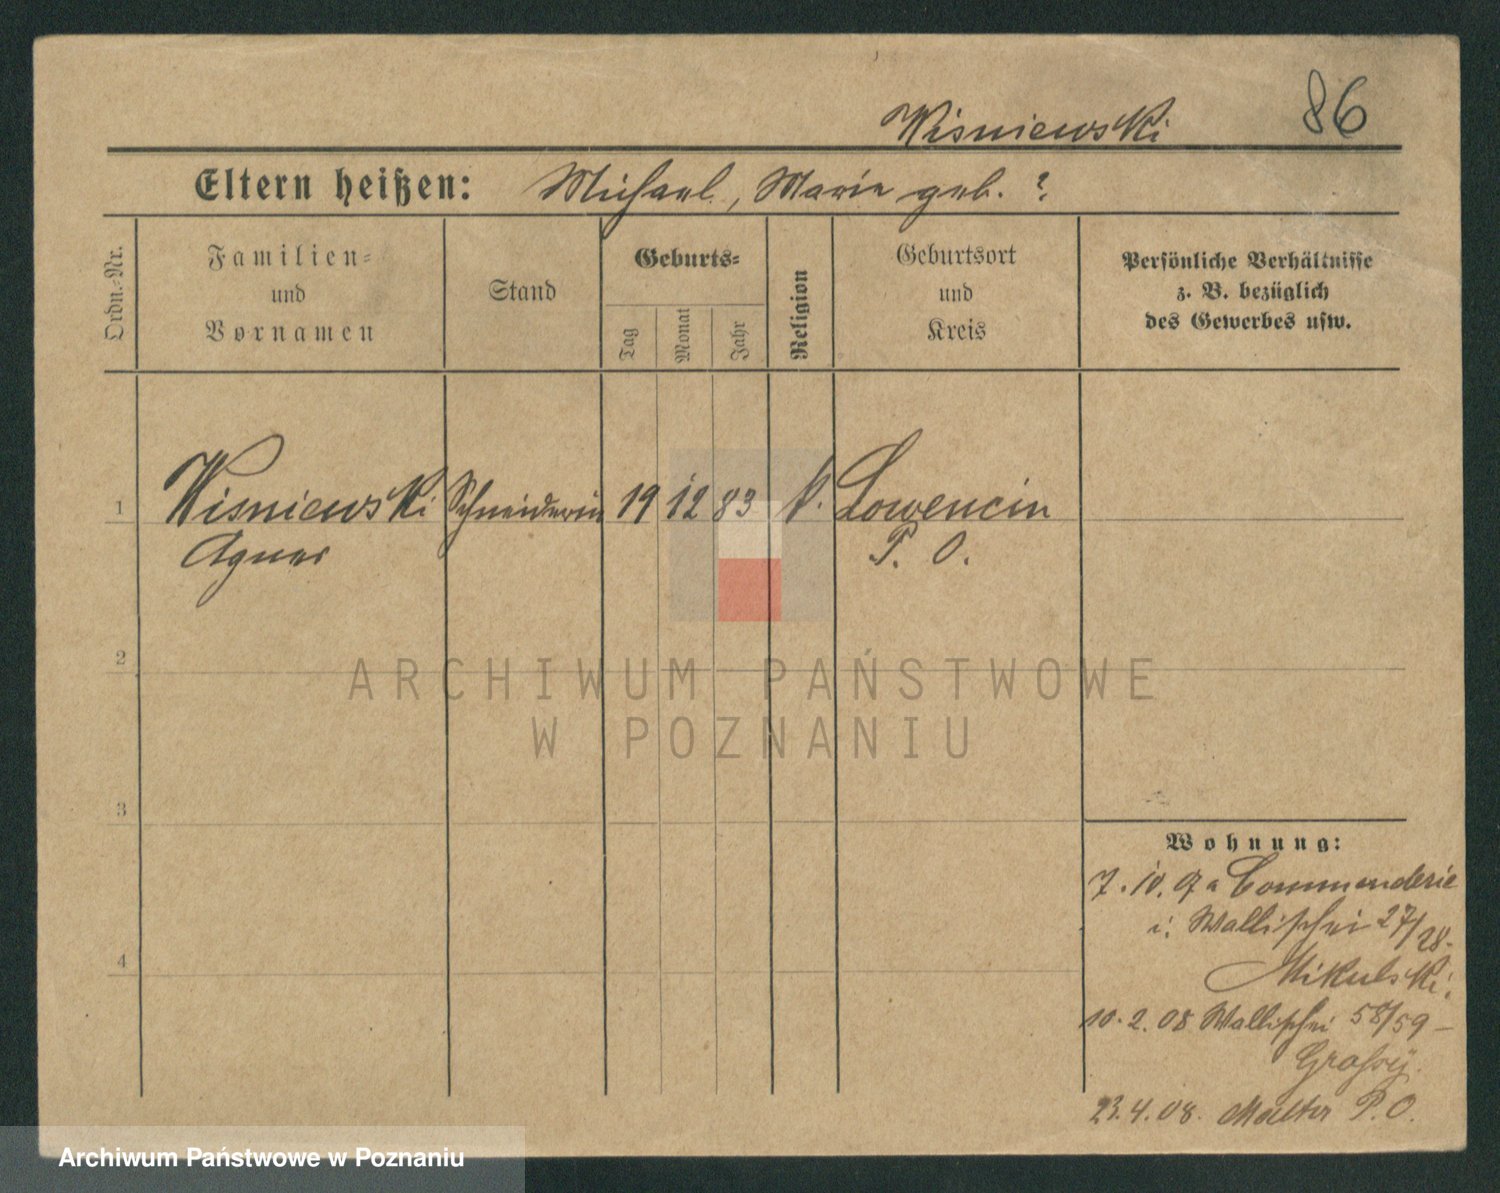 Wisniewski 86
Eltern heißen: Michael, Marie geb. ?
Ordn.-Nr.
Familien-
und
Vornamen
Stand
Geburts-
Tag
Monat
Jahr
Religion
Geburtsort
und
Kreis
Persönliche Verhältnisse
z. B. bezüglich
des Gewerbes usw.
1 Wisniewski Schneiderin 19 12 83 k. Lowencin
Agnes P. O.
2
3
4
Wohnung:
7. 10. 07 Commenderie
i. Wallischei 27/28-
Mikulski.
10. 2. 08 Wallischei 58/59-
23. 4. 08. P. O.
ARCHIWUM PAŃSTWOWE
W POZNANIU
Archiwum Państwowe w Poznaniu